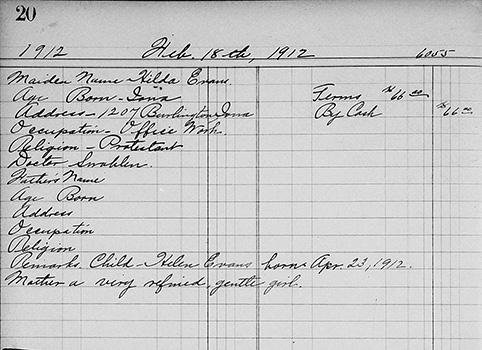 20
1912 Feb. 18th, 1912 6055
Maiden Name - Hilda Evans.
Age Born - Iowa Terms $66.00
Address - 1207 Burlington Iowa By Cash $66.00
Occupation - Office Work.
Religion - Protestant
Doctor
Father's Name
Age Born
Address
Occupation
Religion
Remarks. Child - Helen Evans born Apr. 23, 1912.
Mother a very refined, gentle girl.